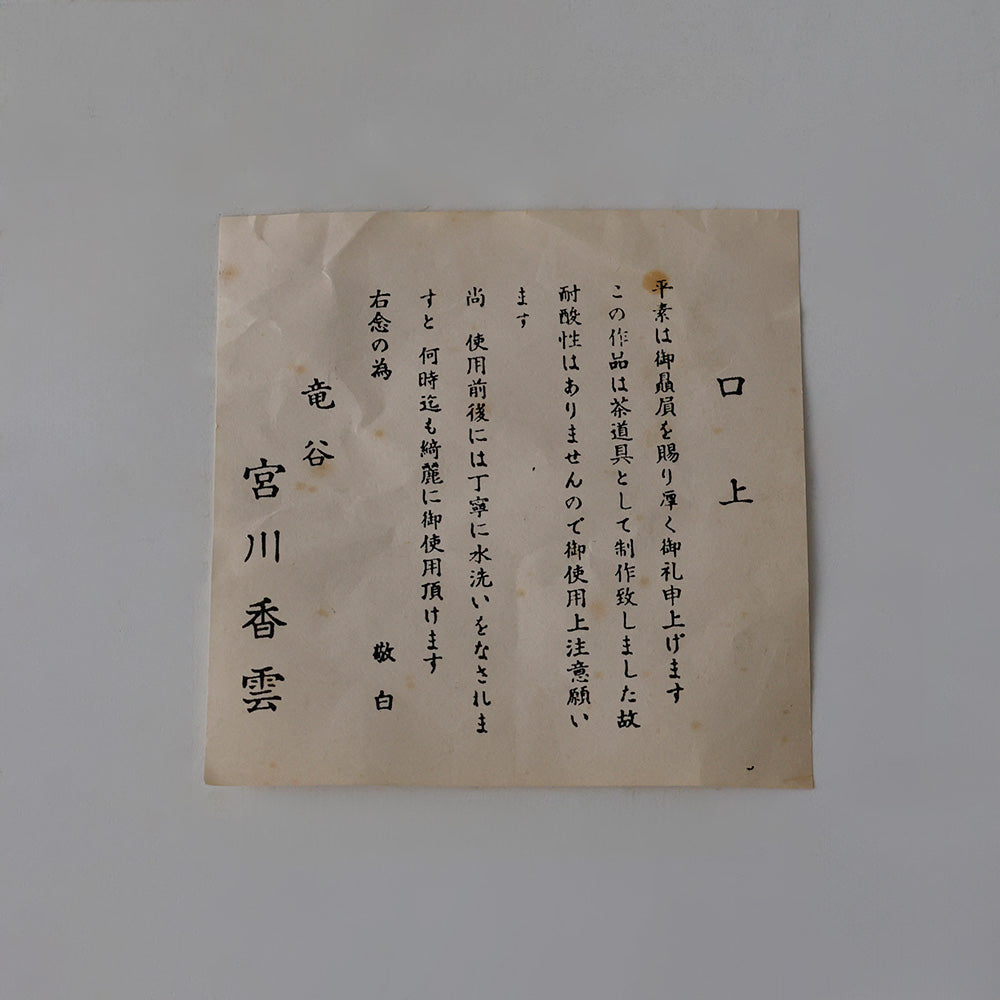 口上
平素は御贔屓を賜り厚く御礼申上げます
この作品は茶道具として制作致しました故
耐酸性はありませんので御使用上注意願い
ます
尚 使用前後には丁寧に水洗いをなされま
すと 何時迄も綺麗に御使用頂けます
右念の為
敬白
竜谷
宮川香雲